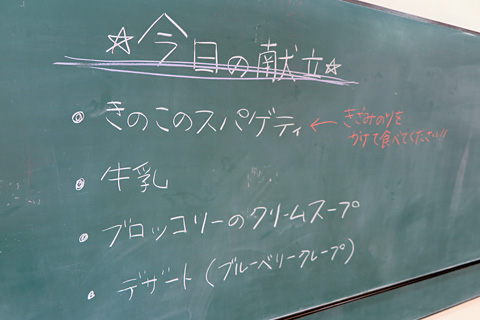 ☆今日の献立☆
きのこのスパゲティ ← きざみのりを
かけて食べてください!!
牛乳
ブロッコリーのクリームスープ
デザート(ブルーベリークレープ)